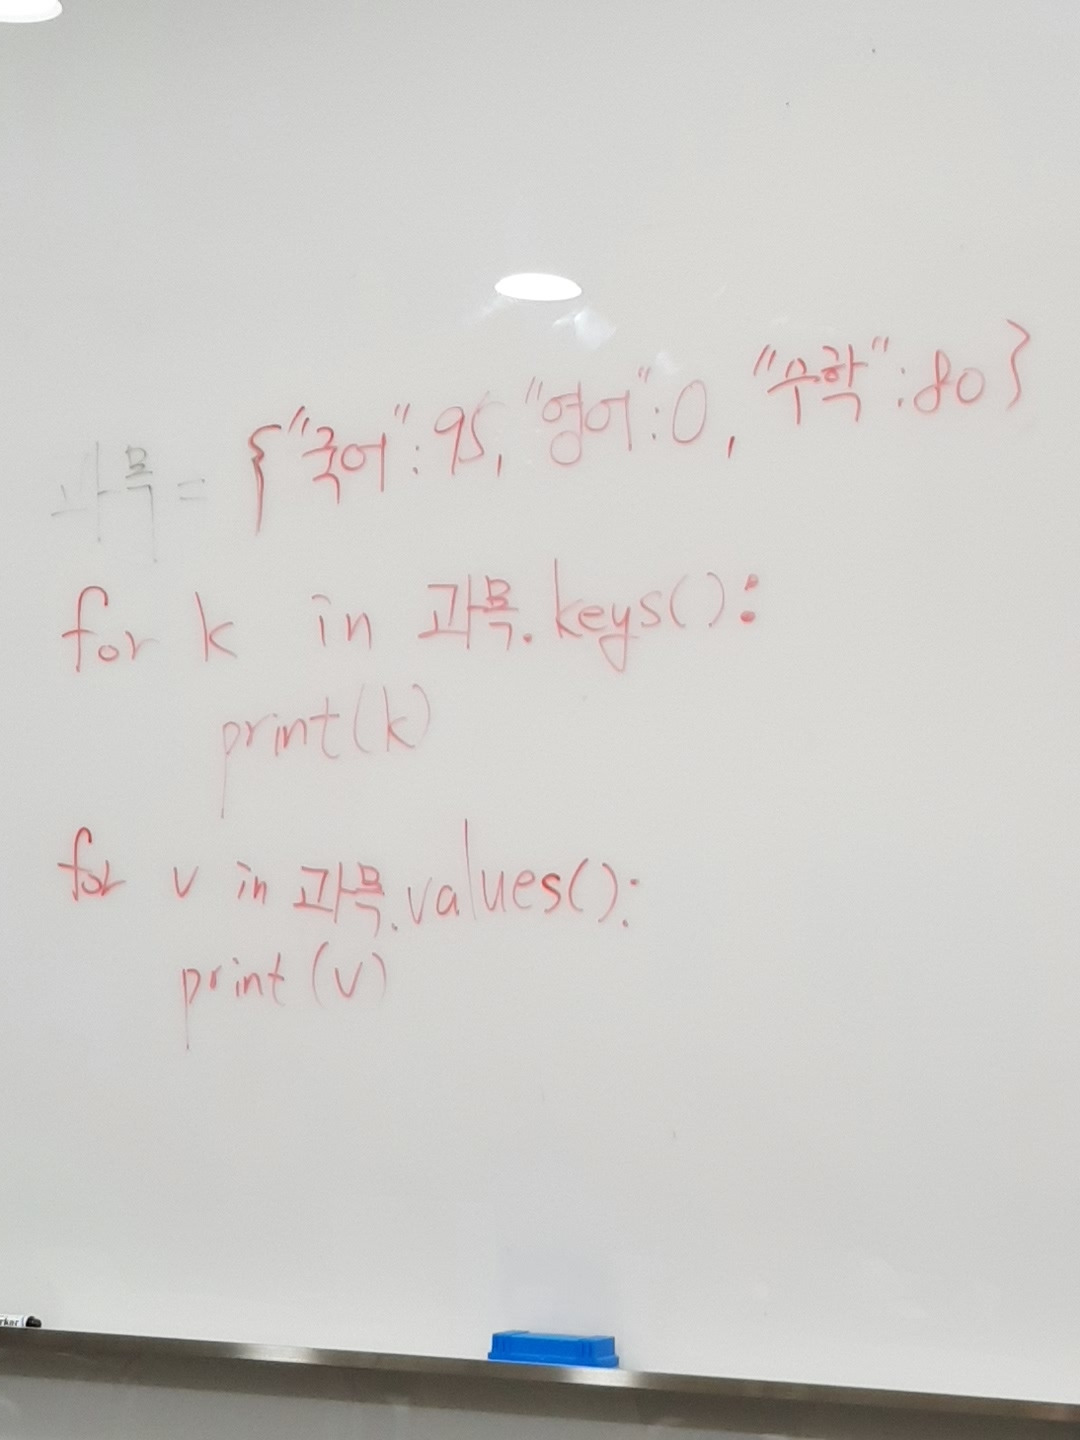 과목 = {"국어":95, "영어":0, "수학":80}
for k in 과목.keys():
print(k)
for v in 과목.values():
print(v)